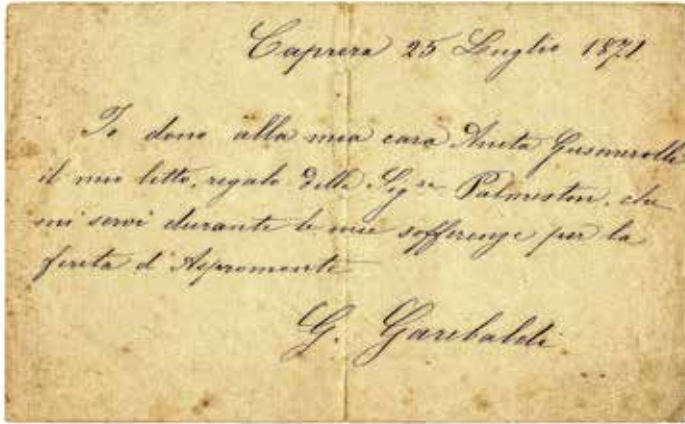 Caprera 25 Luglio 1871
Io dono alla mia cara Anita Gusmerolli
il mio letto, regalo della Sigra Palmerston, che
mi servì durante le mie sofferenze per la
ferita d'Aspromonte
G. Garibaldi